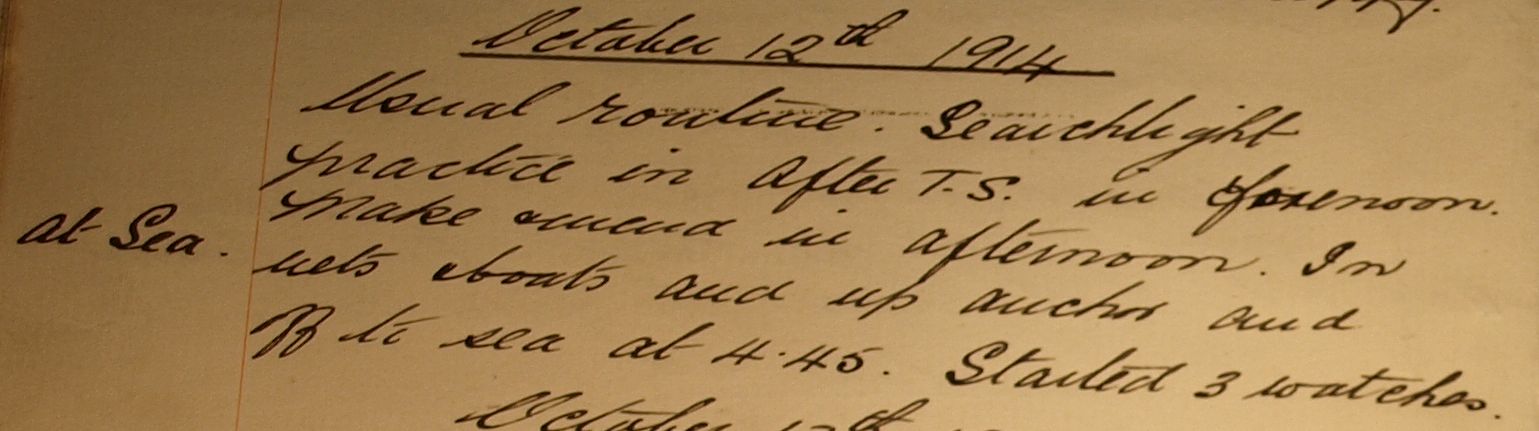 October 12th 1914
Usual routine. Searchlight
practice in After T.S. in forenoon.
Make amend in afternoon. In
At Sea.
nets boats and up anchor and
off to sea at 4.45. Started 3 watches.
October